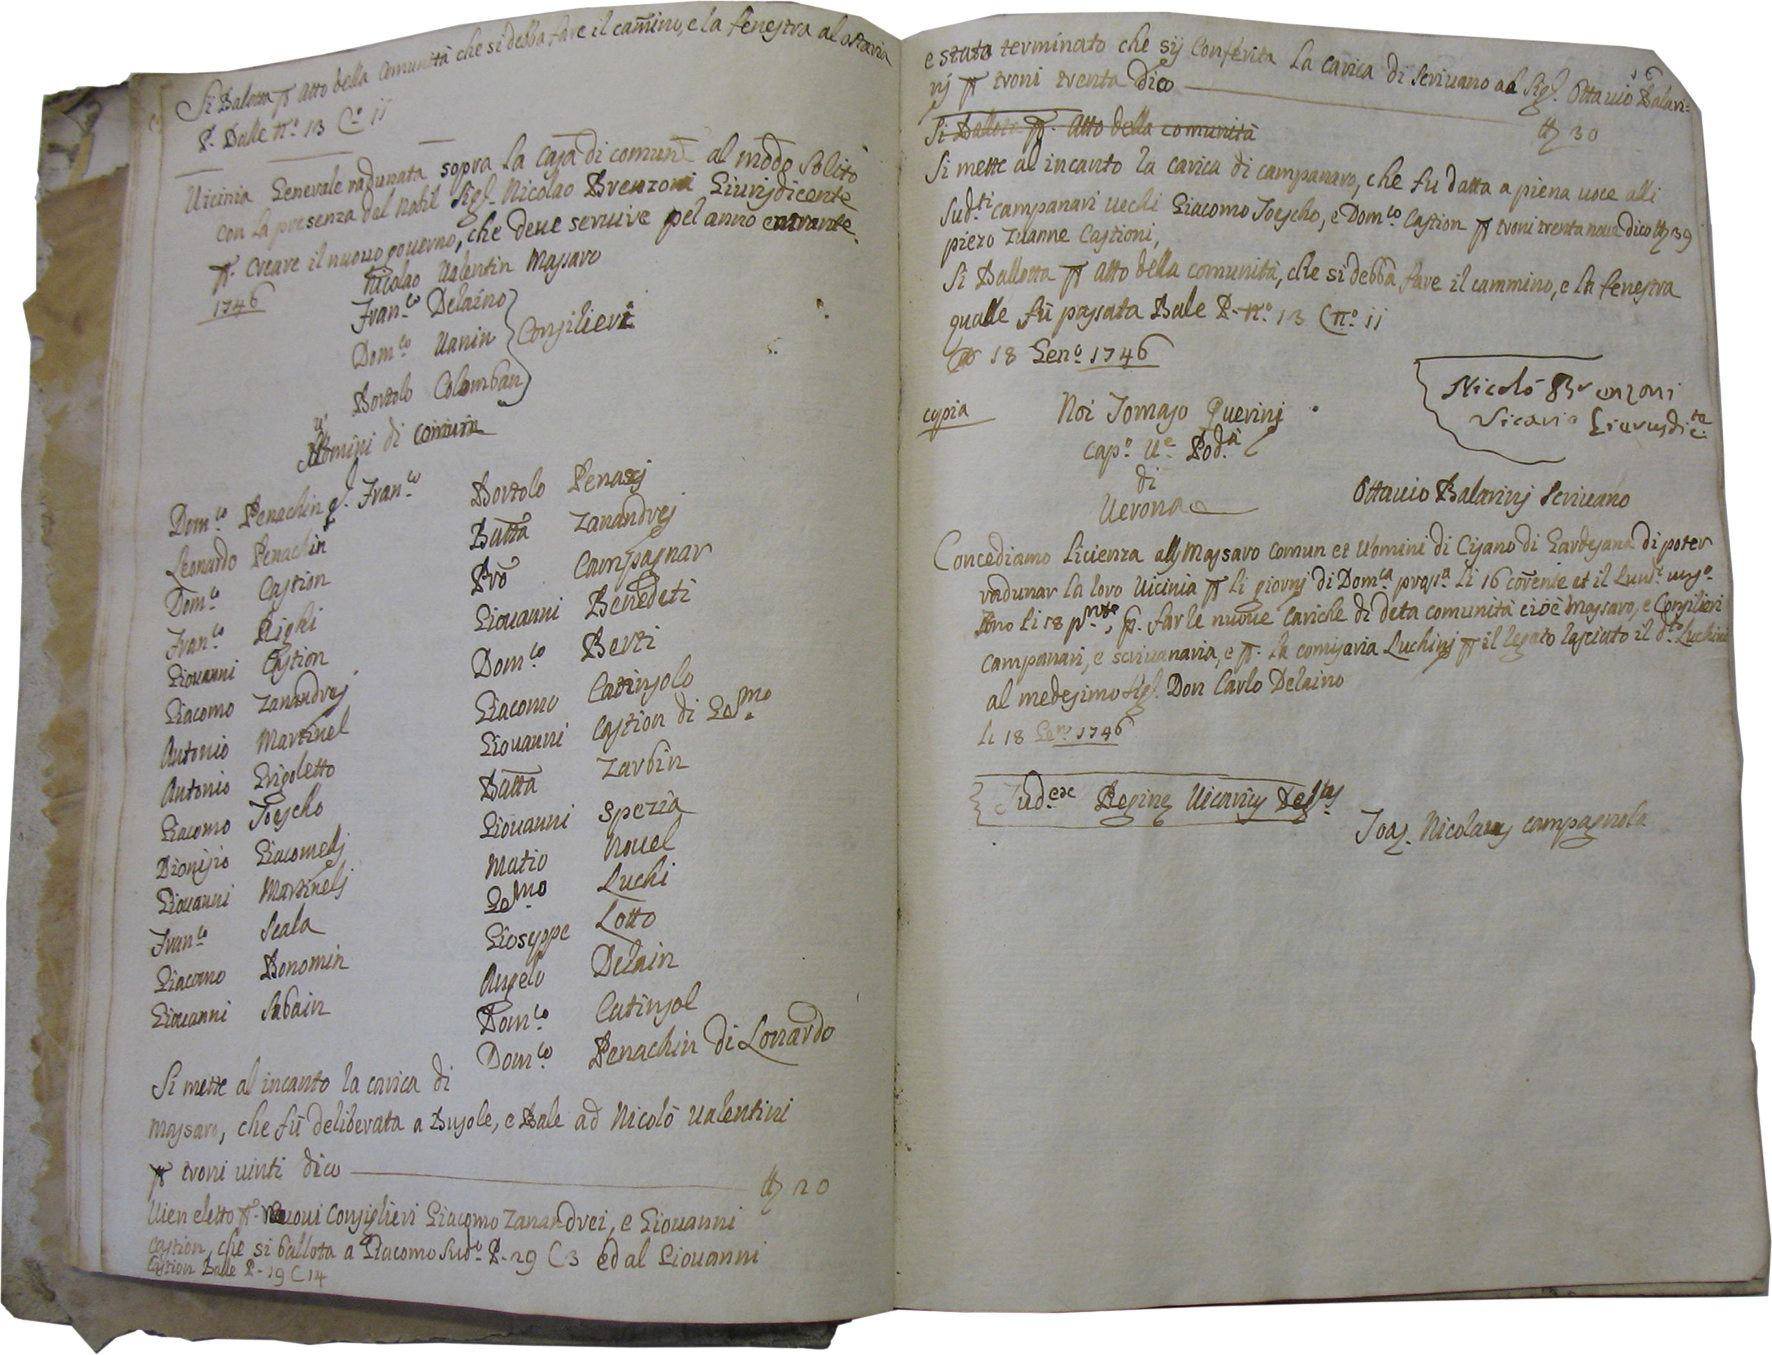 Si Balotta ꝑ atto della Comunità che si debba fare il camino, e la fenestra al ostaria
P. Balle N.º 13 C.º 11
Vicinia Generale radunata sopra la Casa di comun al modo solito
con la presenza del Nobil Sig.r Nicolao Brenzoni Giurisdicente
ꝑ. creare il nuovo governo, che deve servire pel anno entrante.
1746
Nicolao Valentin Massaro
Fran.co Delaino
Dom.co Vanin Consilieri
Bortolo Colomban
Uomini di comun
Dom.co Penachin q. Fran.co
Leonardo Penachin
Dom.co Castion
Fran.co Righi
Giovanni Castion
Giacomo Zanandrej
Antonio Martinel
Antonio Grigoletto
Giacomo Toescho
Dionisio Giacomelj
Giovanni Martinelj
Fran.co Scala
Giacomo Bonomin
Giovanni Sabain
Bortolo Penasij
Batta Zanandrej
Pro Campagnar
Giovanni Benedeti
Dom.co Berti
Giacomo Catinsolo
Giovanni Castion di Go.mo
Batta Zarbin
Giovanni Spezia
Matio Novel
Go.mo Luchi
Gioseppe Lotto
Angelo Delain
Dom.co Catinsol
Dom.co Penachin di Lonardo
Si mette al incanto la carica di
Massaro, che fù deliberata a Busole, e Bale ad Nicolò Valentini
ꝑ troni vinti dico 20
Vien eletto ꝑ. Nuovi Consiglieri Giacomo Zanandrei, e Giovanni
Castion, che si ballota a Giacomo Sud.º P. 29 C 3 ed al Giovanni
Castion Balle P. 19 C 14
16
e stato terminato che sij Conferita la carica di Scrivano al Sig.r Ottavio Balari:
nj ꝑ troni trenta dico 30
Si Ballota ꝑ. atto della comunità
Si mette al incanto la carica di campanaro, che fu datta a piena voce alli
Sud.ti campanari vechi Giacomo Toescho, e Dom.co Castion ꝑ troni trenta nove dico 39
piezo Zuanne Castioni,
Si Ballotta ꝑ atto della comunità, che si debba fare il cammino, e la fenestra
qualle fù passata Bale P. N.º 13 C N.º 11
18 Gen.º 1746
Nicolò Brenzoni
Vicario Giurusdic.te
copia
Noi Tomaso Querinj
Cap.º V.e Pod.à
di
Verona
Ottavio Balarinj Scrivano
Concediamo Licienza alli Massaro Comun et Uomini di Cisano di Gardesana di poter
radunar la loro Vicinia ꝑ li giornj di Dom.ca pross.a li 16 corente et il Lun.
li 18, ꝑ. far le nuove cariche di deta comunità cioè Massaro, e Consilieri
campanari, e scrivanaria, e ꝑ. la comisaria Luchinj ꝑ il legato lasciato il d.to Luchini
al medesimo Sig.r Don Carlo Delaino
li 18 Gen.º 1746
Jud.ex Vicarius
Joas. Nicolaus Campagnola